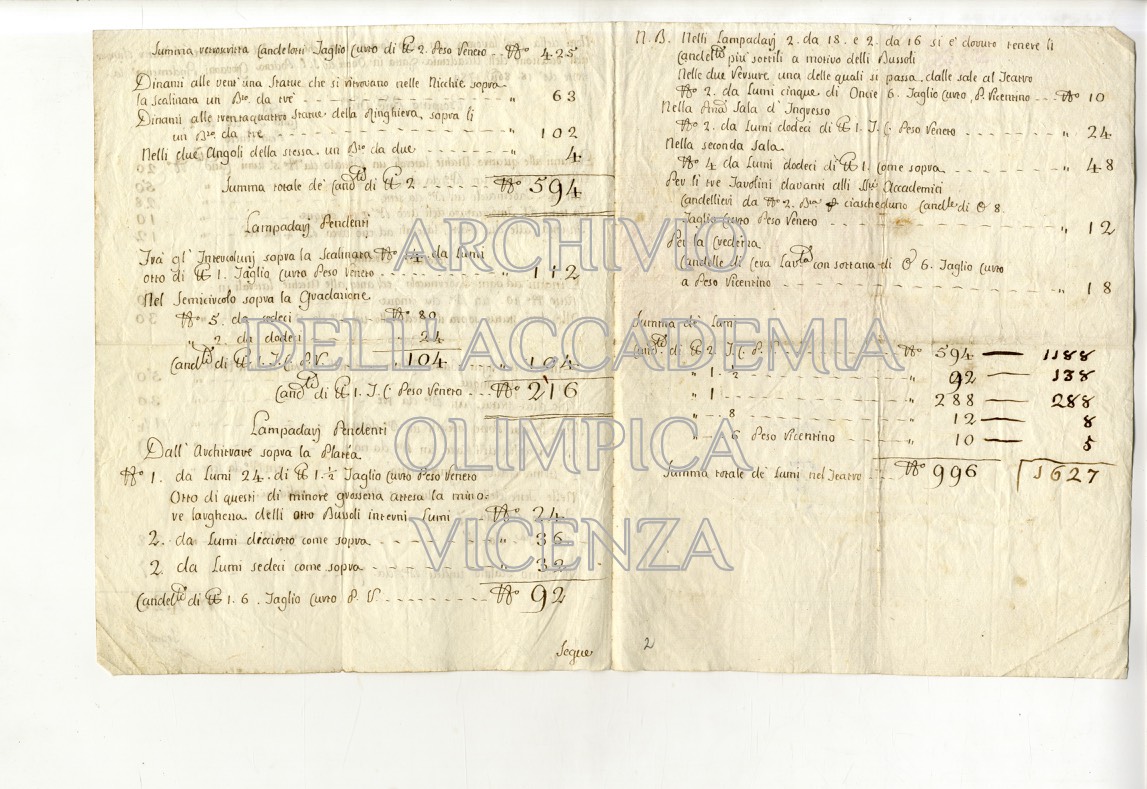 Summa retroscritta Candelotti Taglio Curto di ℔ 2. Peso Veneto -- N.º 425
Dinanti alle vent'una Statue che si ritrovano nelle Nicchie sopra
la Scalinata un B.ro da tre ---- " 63
Dinanti alle trentaquattro Statue della Ringhiera, sopra li
un B.ro da tre ---- " 102
Nelli due Angoli della stessa un B.ro da due ---- " 4
Summa totale de' Cand.tti di ℔ 2 ---- N.º 594
Lampadarj Pendenti
Frà gl' Intercolunj sopra la Scalinata N.º 14. da Lumi
otto di ℔ 1. Taglio Curto Peso Veneto ---- " 112
Nel Semicircolo sopra la Gradazione
N.º 5. da sedeci -- N.º 80
" 2. da dodeci 24
Cand.tti di ℔ 1. T. C. P. V. ---- 104 ---- " 104
Cand.tti di ℔ 1. T. C. Peso Veneto -- N.º 216
Lampadarj Pendenti
Dall' Architrave sopra la Platea
N.º 1. da Lumi 24. di ℔ 1.½ Taglio Curto Peso Veneto
Otto di questi di minore grossezza attesa la mino=
re larghezza delli otto Bussoli interni Lumi -- N.º 24
2. da Lumi diciotto come sopra ---- " 36
2. da Lumi sedeci come sopra ---- " 32
Candel.tti di ℔ 1. 6. Taglio Curto P. V. ---- N.º 92
Segue
N. B. Nelli Lampadarj 2. da 18. e 2. da 16 si e' dovuto tenere li
Candel.tti più sottili a motivo delli Bussoli
Nelle due Versure, una delle quali si passa dalle sale al Teatro
N.º 2. da Lumi cinque di Oncie 6. Taglio Curto, P. Vicentino -- N.º 10
Nella Sala d' Ingresso
N.º 2. da Lumi dodeci di ℔ 1. T. C. Peso Veneto ---- " 24
Nella seconda Sala
N.º 4 da Lumi dodeci di ℔ 1. Come sopra ---- " 48
Per li tre Tavolini davanti alli Accademici
Candellieri da N.º 2. ciascheduno Cand.le di O 8.
Taglio Curto Peso Veneto ---- " 12
Per la Credenza
Candelle di Cera con sottana di O 6. Taglio Curto
a Peso Vicentino ---- " 18
Summa de' Lumi
Cand.tti di ℔ 2 T. C. P. V. ---- N.º 594 — 1188
" 1. ½ ---- " 92 — 138
" 1 ---- " 288 — 288
" — 8 ---- " 12 — 8
" — 6 Peso Vicentino ---- " 10 — 5
Summa totale de' Lumi nel Teatro -- N.º 996 1627
2
ARCHIVIO
DELL'ACCADEMIA
OLIMPICA
VICENZA